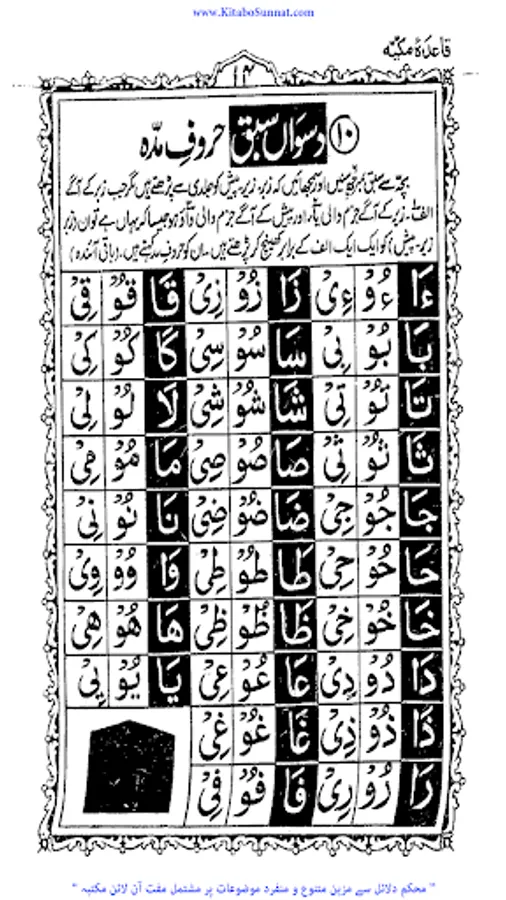 www.KitaboSunnat.com
قاعدہ مکیّہ
۱۴
۱۰ دسواں سبق حروفِ مدّہ
بچہ سے سبق نمبر سنیں اور سمجھائیں کہ زبر۔ زیر۔ پیش کو جلدی سے پڑھتے ہیں مگر جب زبر کے آگے
الف۔ زیر کے آگے جزم والی یآ، اور پیش کے آگے جزم والی وَآؤ ہو جیسا کہ یہاں ہے تو ان (زبر
زیر۔ پیش) کو ایک ایک الف کے برابر کھینچ کر پڑھتے ہیں۔ ان کو حروف مدہ کہتے ہیں۔ (باقی آئندہ)
ءَا ءُوْ ءِیْ زَا زُوْ زِیْ قَا قُوْ قِیْ
بَا بُوْ بِیْ سَا سُوْ سِیْ كَا كُوْ كِیْ
تَا تُوْ تِیْ شَا شُوْ شِیْ لَا لُوْ لِیْ
ثَا ثُوْ ثِیْ صَا صُوْ صِیْ مَا مُوْ مِیْ
جَا جُوْ جِیْ ضَا ضُوْ ضِیْ نَا نُوْ نِیْ
حَا حُوْ حِیْ طَا طُوْ طِیْ وَا وُوْ وِیْ
خَا خُوْ خِیْ ظَا ظُوْ ظِیْ هَا هُوْ هِیْ
دَا دُوْ دِیْ عَا عُوْ عِیْ یَا یُوْ یِیْ
ذَا ذُوْ ذِیْ غَا غُوْ غِیْ
رَا رُوْ رِیْ فَا فُوْ فِیْ
" محکم دلائل سے مزین متنوع و منفرد موضوعات پر مشتمل مفت آن لائن مکتبہ "